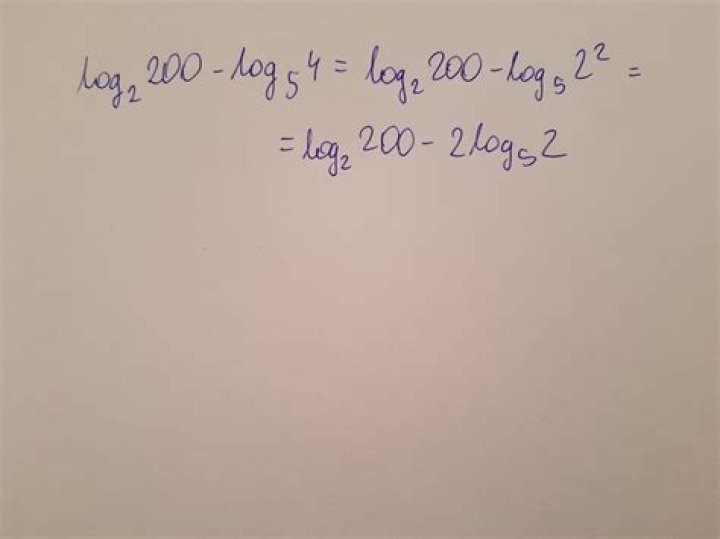 log₂ 200 - log₅ 4 = log₂ 200 - log₅ 2² =
= log₂ 200 - 2 log₅ 2